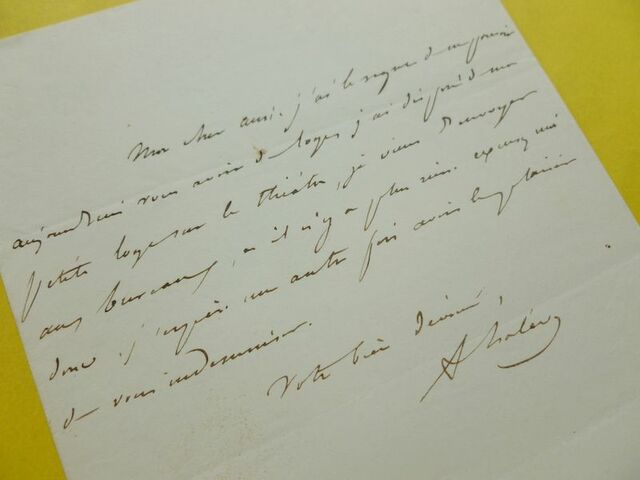 Mon cher ami. j'ai le regret de ne pouvoir
aujourd'hui vous avoir de loges j'ai disposé de ma
petite loge sur le théâtre, je viens d'envoyer
aux bureaux, et il n'y a plus rien. excusez moi
donc. j'espère une autre fois avoir le plaisir
de vous indemniser.
Votre bien dévoué,